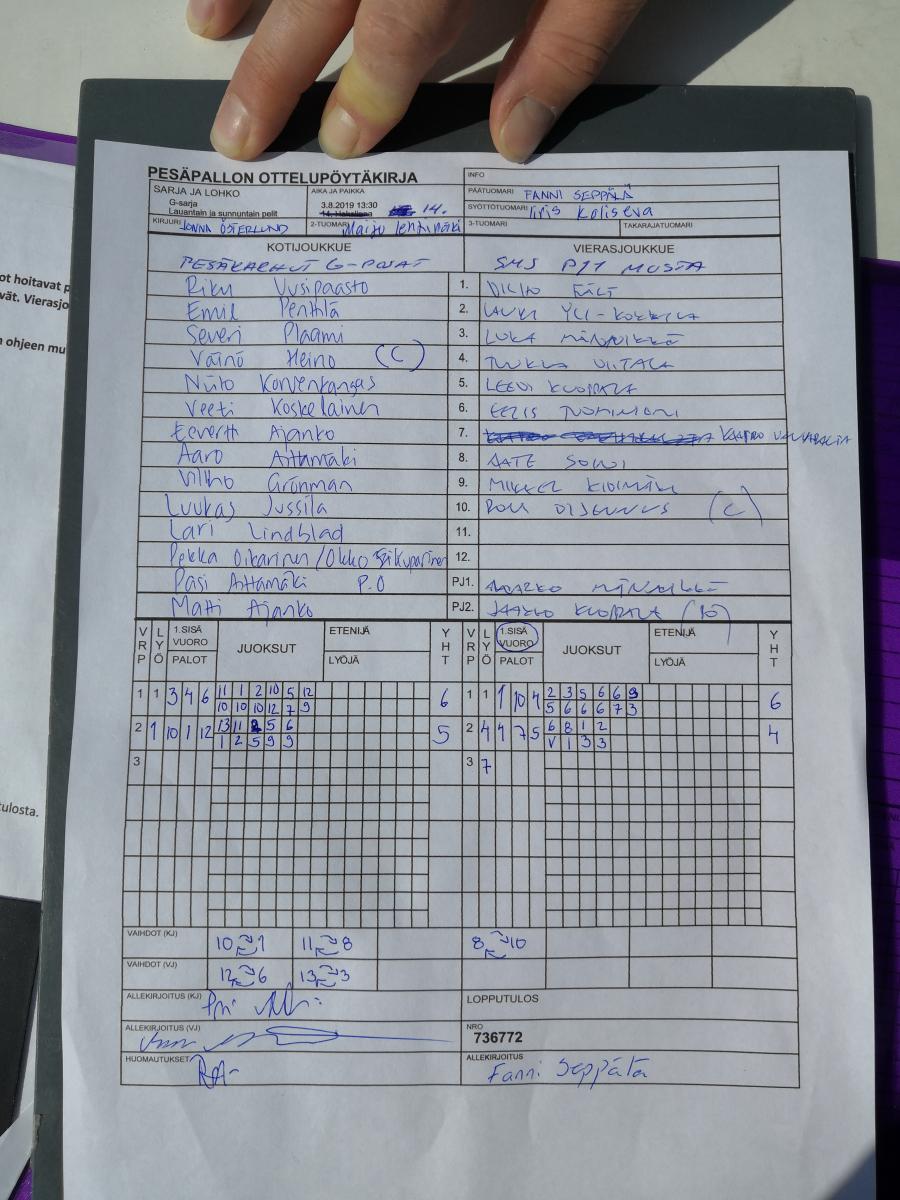 ot hoitavat p
vät. Vierasjo
n ohjeen mu
tulosta.
PESÄPALLON OTTELUPÖYTÄKIRJA
INFO
SARJA JA LOHKO
G-sarja
Lauantain ja sunnuntain pelit
AIKA JA PAIKKA
3.8.2019 13:30
14.
PÄÄTUOMARI FANNI SEPPÄLÄ
SYÖTTÖTUOMARI Iiris Koliseva
KIRJURI JONNA ÖSTERLUND
2-TUOMARI Maiju Lehtimäki
3-TUOMARI
TAKARAJATUOMARI
KOTIJOUKKUE
VIERASJOUKKUE
PESÄKARHUT G-POJAT
SMJ P11 MUSTA
Riku Uusipaasto 1.
Emil Penttilä 2. LAURI YLI-KOKKILA
Severi Plaami 3. LUKA MÄNNIKKÖ
Väinö Heino (C) 4. TUUKKA VIITALA
Niilo Korvenkangas 5. LEEVI KUOPPALA
Veeti Koskelainen 6. EELIS TUOMINONI
Eevertti Ajanko 7. KAAPRO
Aaro Aittamäki 8. AATE SOINI
Vilho Grönman 9. MIKAEL KIVIMÄKI
Luukas Jussila 10. (C)
Lari Lindblad 11.
Pekka Oikarinen / Okko 12.
Pasi Aittamäki P.O PJ1.
Matti Ajanko PJ2. JAAKKO KUOPPALA
VRP LYÖ 1.SISÄ VUORO PALOT JUOKSUT ETENIJÄ LYÖJÄ YHT VRP LYÖ 1.SISÄ VUORO PALOT JUOKSUT ETENIJÄ LYÖJÄ YHT
1 1 3 4 6 11 1 2 10 5 12 6 1 1 1 10 4 2 3 5 6 6 9 6
10 10 10 12 7 9 5 6 6 6 7 3
2 1 10 1 12 13 11 2 5 6 5 2 4 4 7 5 6 8 1 2 4
1 2 5 9 9 V 1 3 3
3 3 7
VAIHDOT (KJ) 10 1 11 8 8 10
VAIHDOT (VJ) 12 6 13 3
ALLEKIRJOITUS (KJ)
LOPPUTULOS
ALLEKIRJOITUS (VJ)
NRO
736772
HUOMAUTUKSET
ALLEKIRJOITUS
Fanni Seppälä